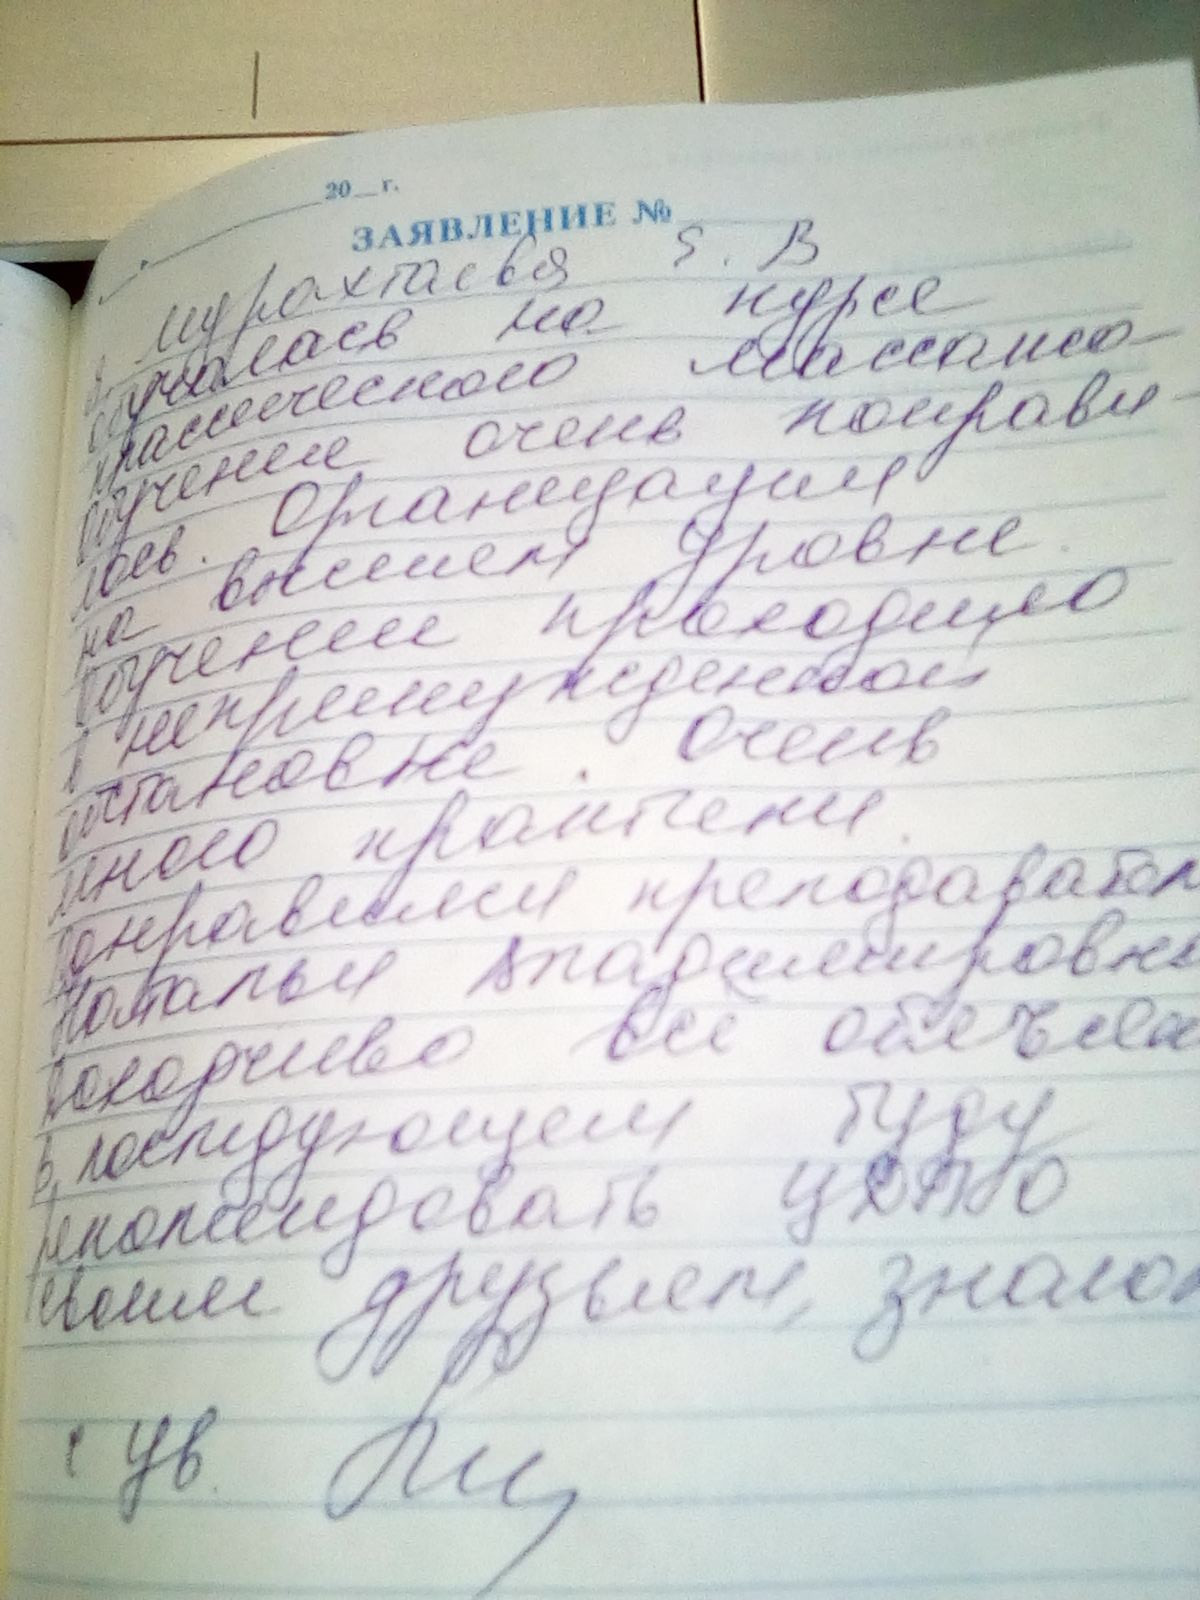 20__г.
ЗАЯВЛЕНИЕ №
Я S. В
обучалась на курсе
классического массажа
Обучение очень понрави-
лось. Организация
на высшем уровне.
Обучение проходило
в непринужденной
обстановке. Очень
много практики.
Понравился преподаватель
Наталья Владимировна
доходчиво всё объясня
В последующем буду
рекомендовать ЦДПО
своим друзьям, знаком
с ув.